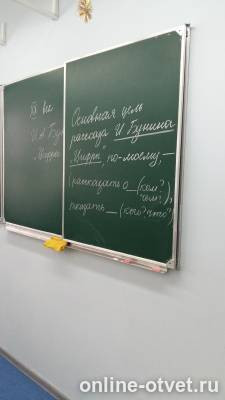 III вар
И А Бун
"Цифры
Основная цель
рассказа И Бунина
"Цифры", по-моему, –
(рассказать о _ (ком?
чём?),
показать _ (кого? что?)
online-otvet.ru